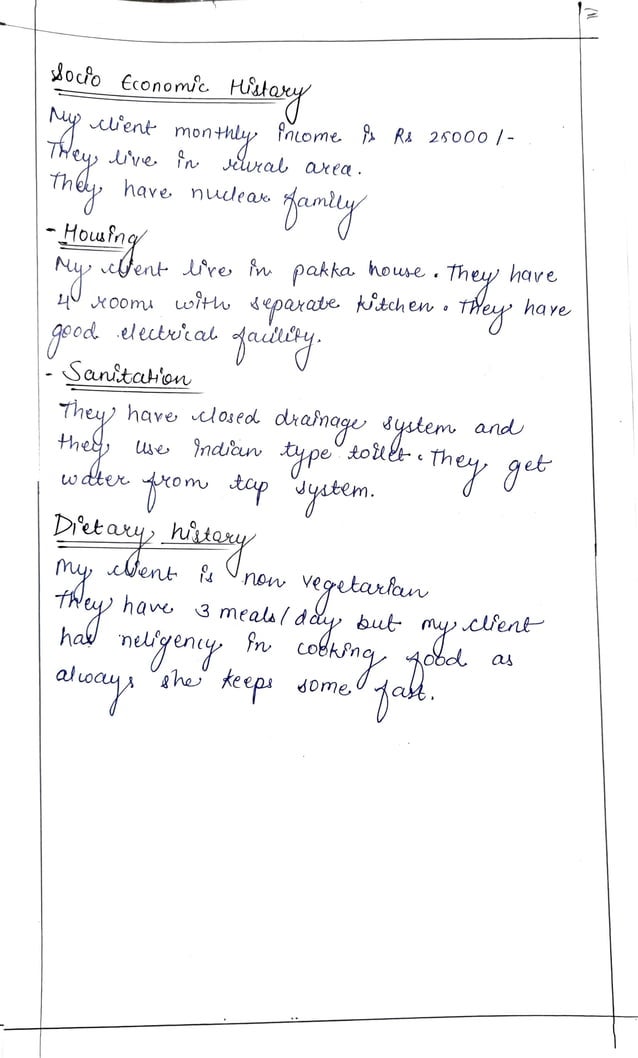 Socio Economic History
My client monthly income is Rs 25000/-
They live in rural area.
They have nuclear family
- Housing
My client live in pakka house. They have
4 rooms with separate kitchen. They have
good electrical facility.
- Sanitation
They have closed drainage system and
they use Indian type toilet. They get
water from tap system.
Dietary history
My client is non vegetarian
They have 3 meals/day but my client
has neligency in cooking food as
always she keeps some fast.